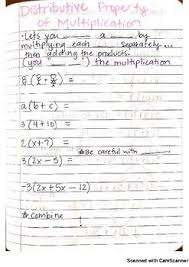 Distributive Property
of Multiplication
• Lets you ____ a ____ by
multiplying each ____ separately...
then adding the products.
(you ____) the multiplication
a(b + c) =
3(4+10) =
2(x+7) =
• Be careful with ____
3(2x - 5) =
-3(2x + 5x - 12)
& combine !
Scanned with CamScanner